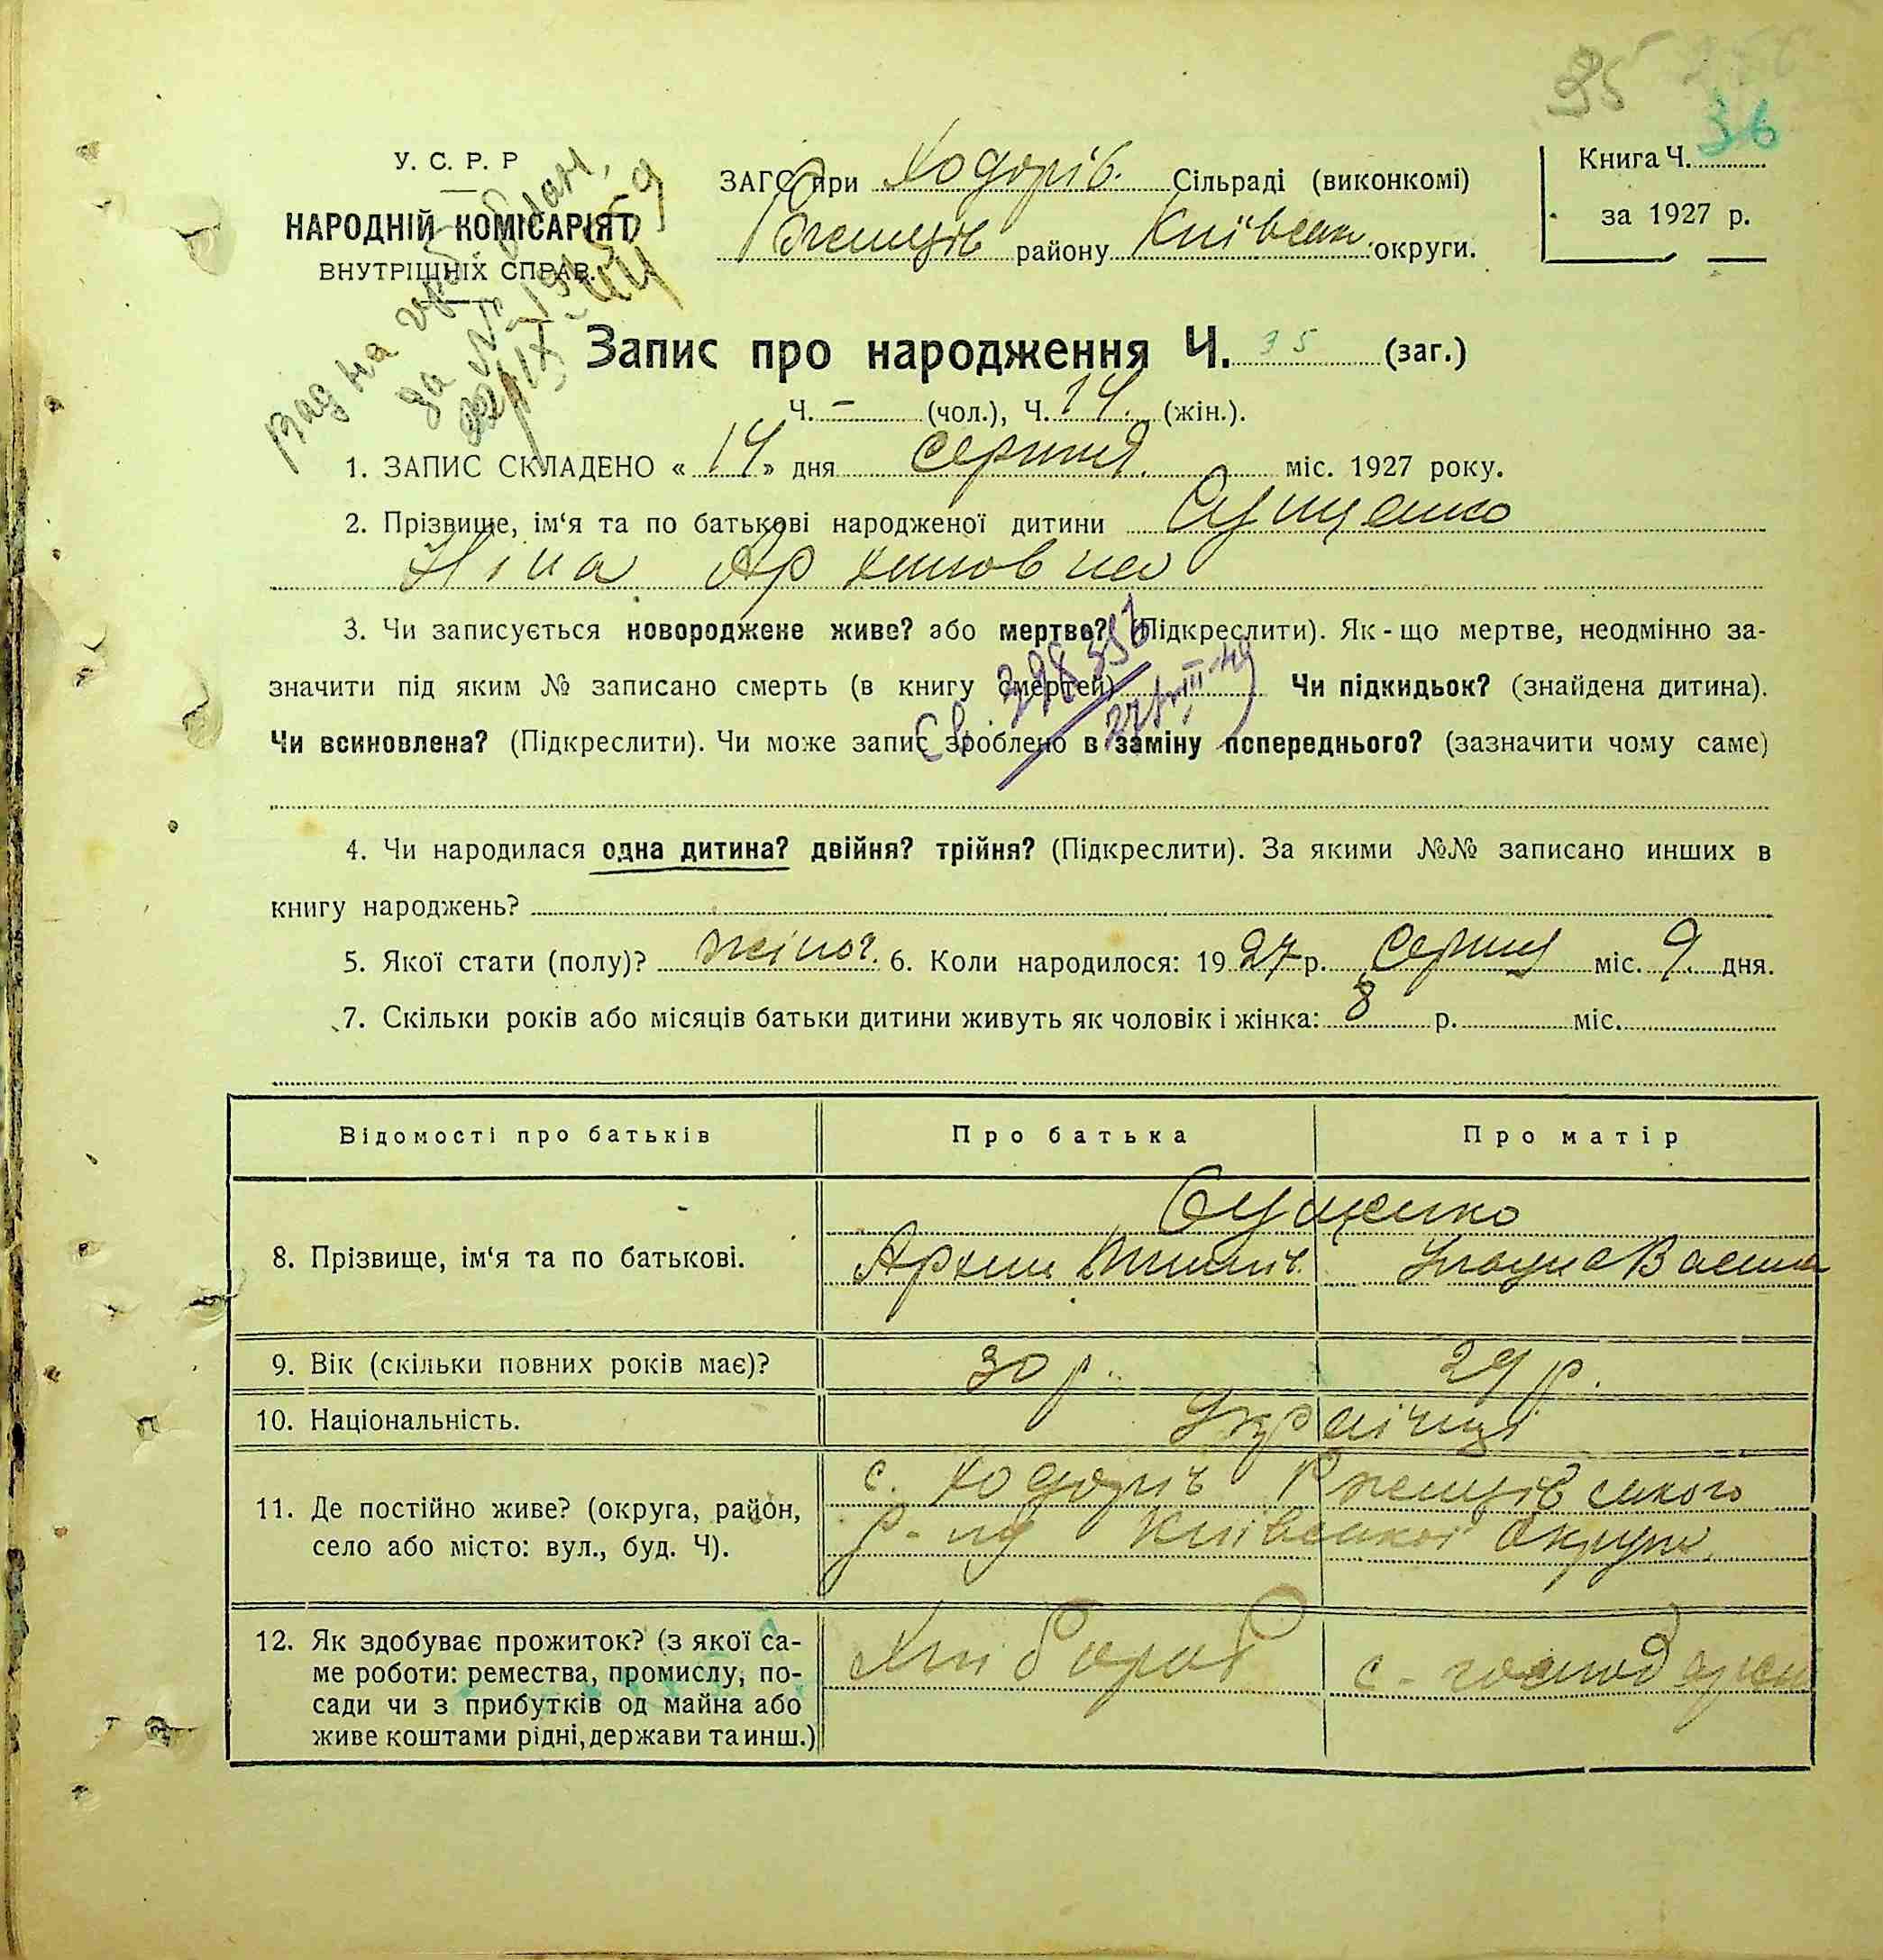 35
36
У. С. Р. Р
НАРОДНІЙ КОМІСАРІЯТ
ВНУТРІШНІХ СПРАВ.
ЗАГС при Ходорів. Сільраді (виконкомі)
Ржищів району Київськ. округи.
Книга Ч.
за 1927 р.
Запис про народження Ч. 35 (заг.)
Ч. – (чол.), Ч. 14. (жін.).
1. ЗАПИС СКЛАДЕНО « 14 » дня серпня міс. 1927 року.
2. Прізвище, ім‘я та по батькові народженої дитини Сущенко
Ніна Архиповна
3. Чи записується новороджене живе? або мертве? (Підкреслити). Як-що мертве, неодмінно за-
значити під яким № записано смерть (в книгу смертей) Чи підкидьок? (знайдена дитина).
Чи всиновлена? (Підкреслити). Чи може запис зроблено в заміну попереднього? (зазначити чому саме)
4. Чи народилася одна дитина? двійня? трійня? (Підкреслити). За якими №№ записано инших в
книгу народжень?
5. Якої стати (полу)? жіноч. 6. Коли народилося: 1927 р. Серпня міс. 9. дня.
7. Скільки років або місяців батьки дитини живуть як чоловік і жінка: 8 р. міс.
Відомості про батьків Про батька Про матір
8. Прізвище, ім‘я та по батькові. Сущенко
Архип Васил
9. Вік (скільки повних років має)? 30 р. 29 р.
10. Національність. Україньці
11. Де постійно живе? (округа, район,
село або місто: вул., буд. Ч).
с. Ходорів Ржищівського
р-ну Київської Округи.
12. Як здобуває прожиток? (з якої са-
ме роботи: ремества, промислу, по-
сади чи з прибутків од майна або
живе коштами рідні, держави та инш.)
Хлібороб с-господарка